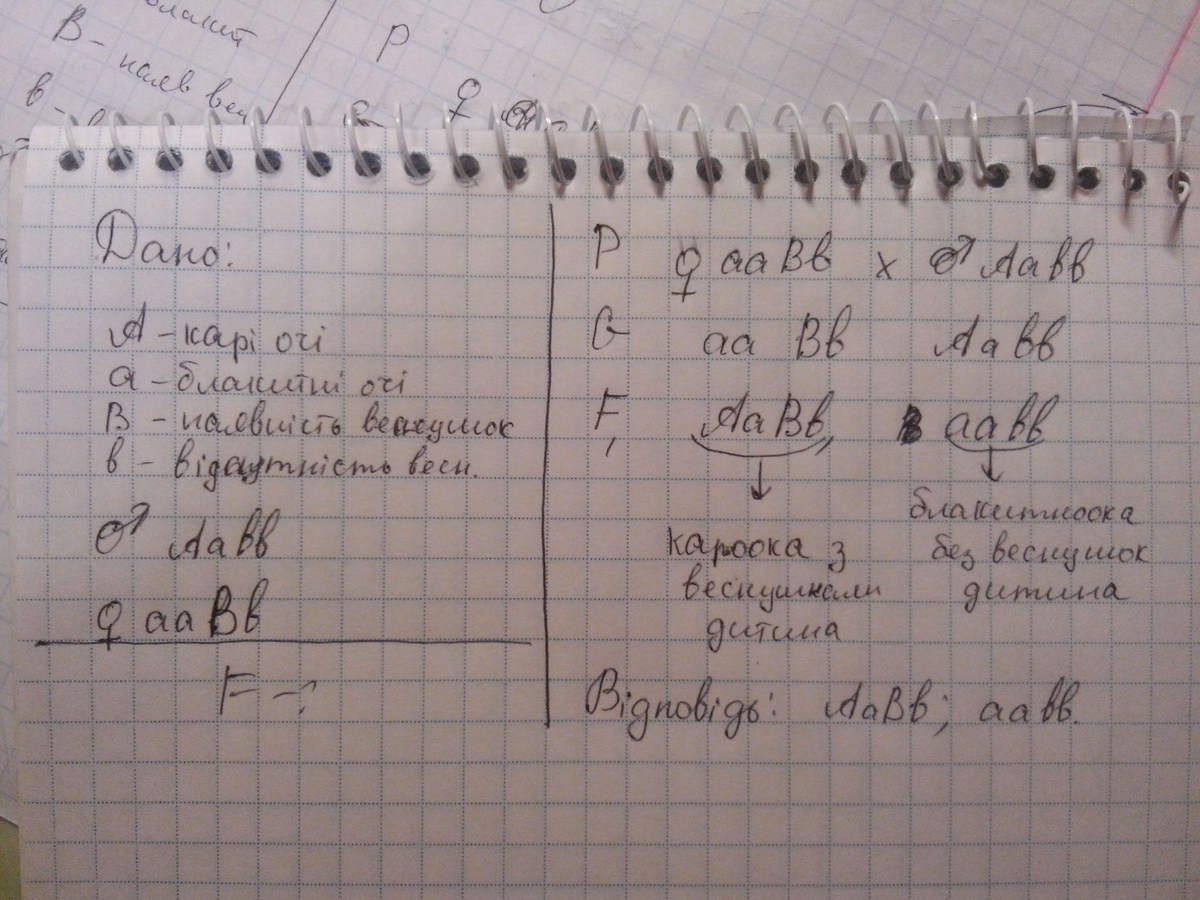 блакит
В - наяв весн
в - в
Р
♀
Дано:
А - карі очі
а - блакитні очі
В - наявність веснушок
в - відсутність весн.
♂ Аавв
♀ ааВв
F - ?
Р ♀ ааВв х ♂ Аавв
G аа Вв Аа вв
F₁ АаВв, аавв
кароока з
веснушками
дитина
блакитноока
без веснушок
дитина
Відповідь: АаВв; аавв.